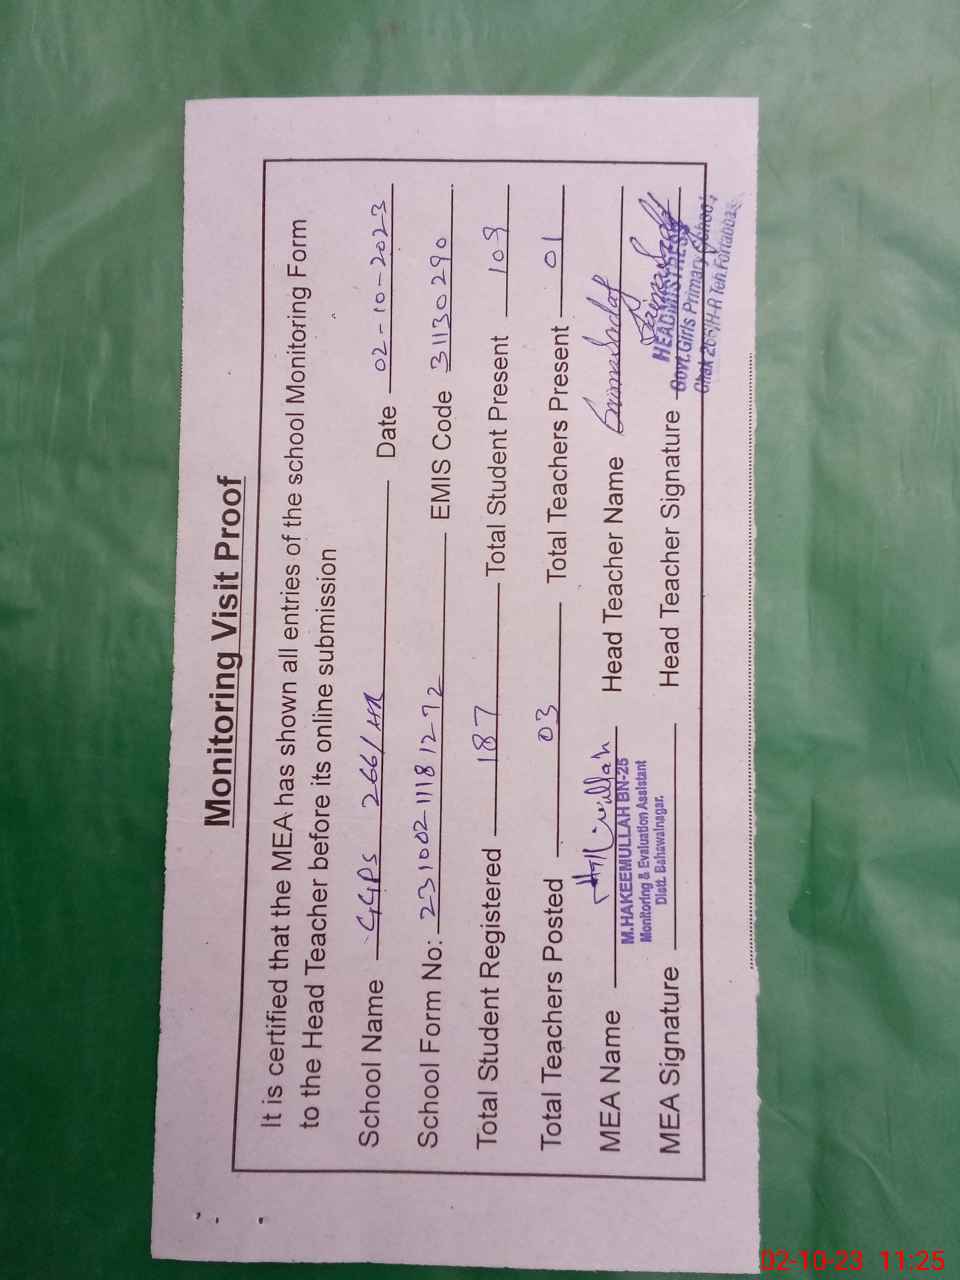 Monitoring Visit Proof
It is certified that the MEA has shown all entries of the school Monitoring Form
to the Head Teacher before its online submission
School Name GGPS 266/HR Date 02-10-2023
School Form No: 2310021118 1272 EMIS Code 31130290
Total Student Registered 187 Total Student Present 109
Total Teachers Posted 03 Total Teachers Present 01
MEA Name Head Teacher Name
M.HAKEEMULLAH BN-25
Monitoring & Evaluation Assistant
Distt. Bahawalnagar.
MEA Signature Head Teacher Signature
HEADMISTRESS
Govt. Girls Primary School
Chak 266/H-R Teh. Fortabbas
02-10-23 11:25